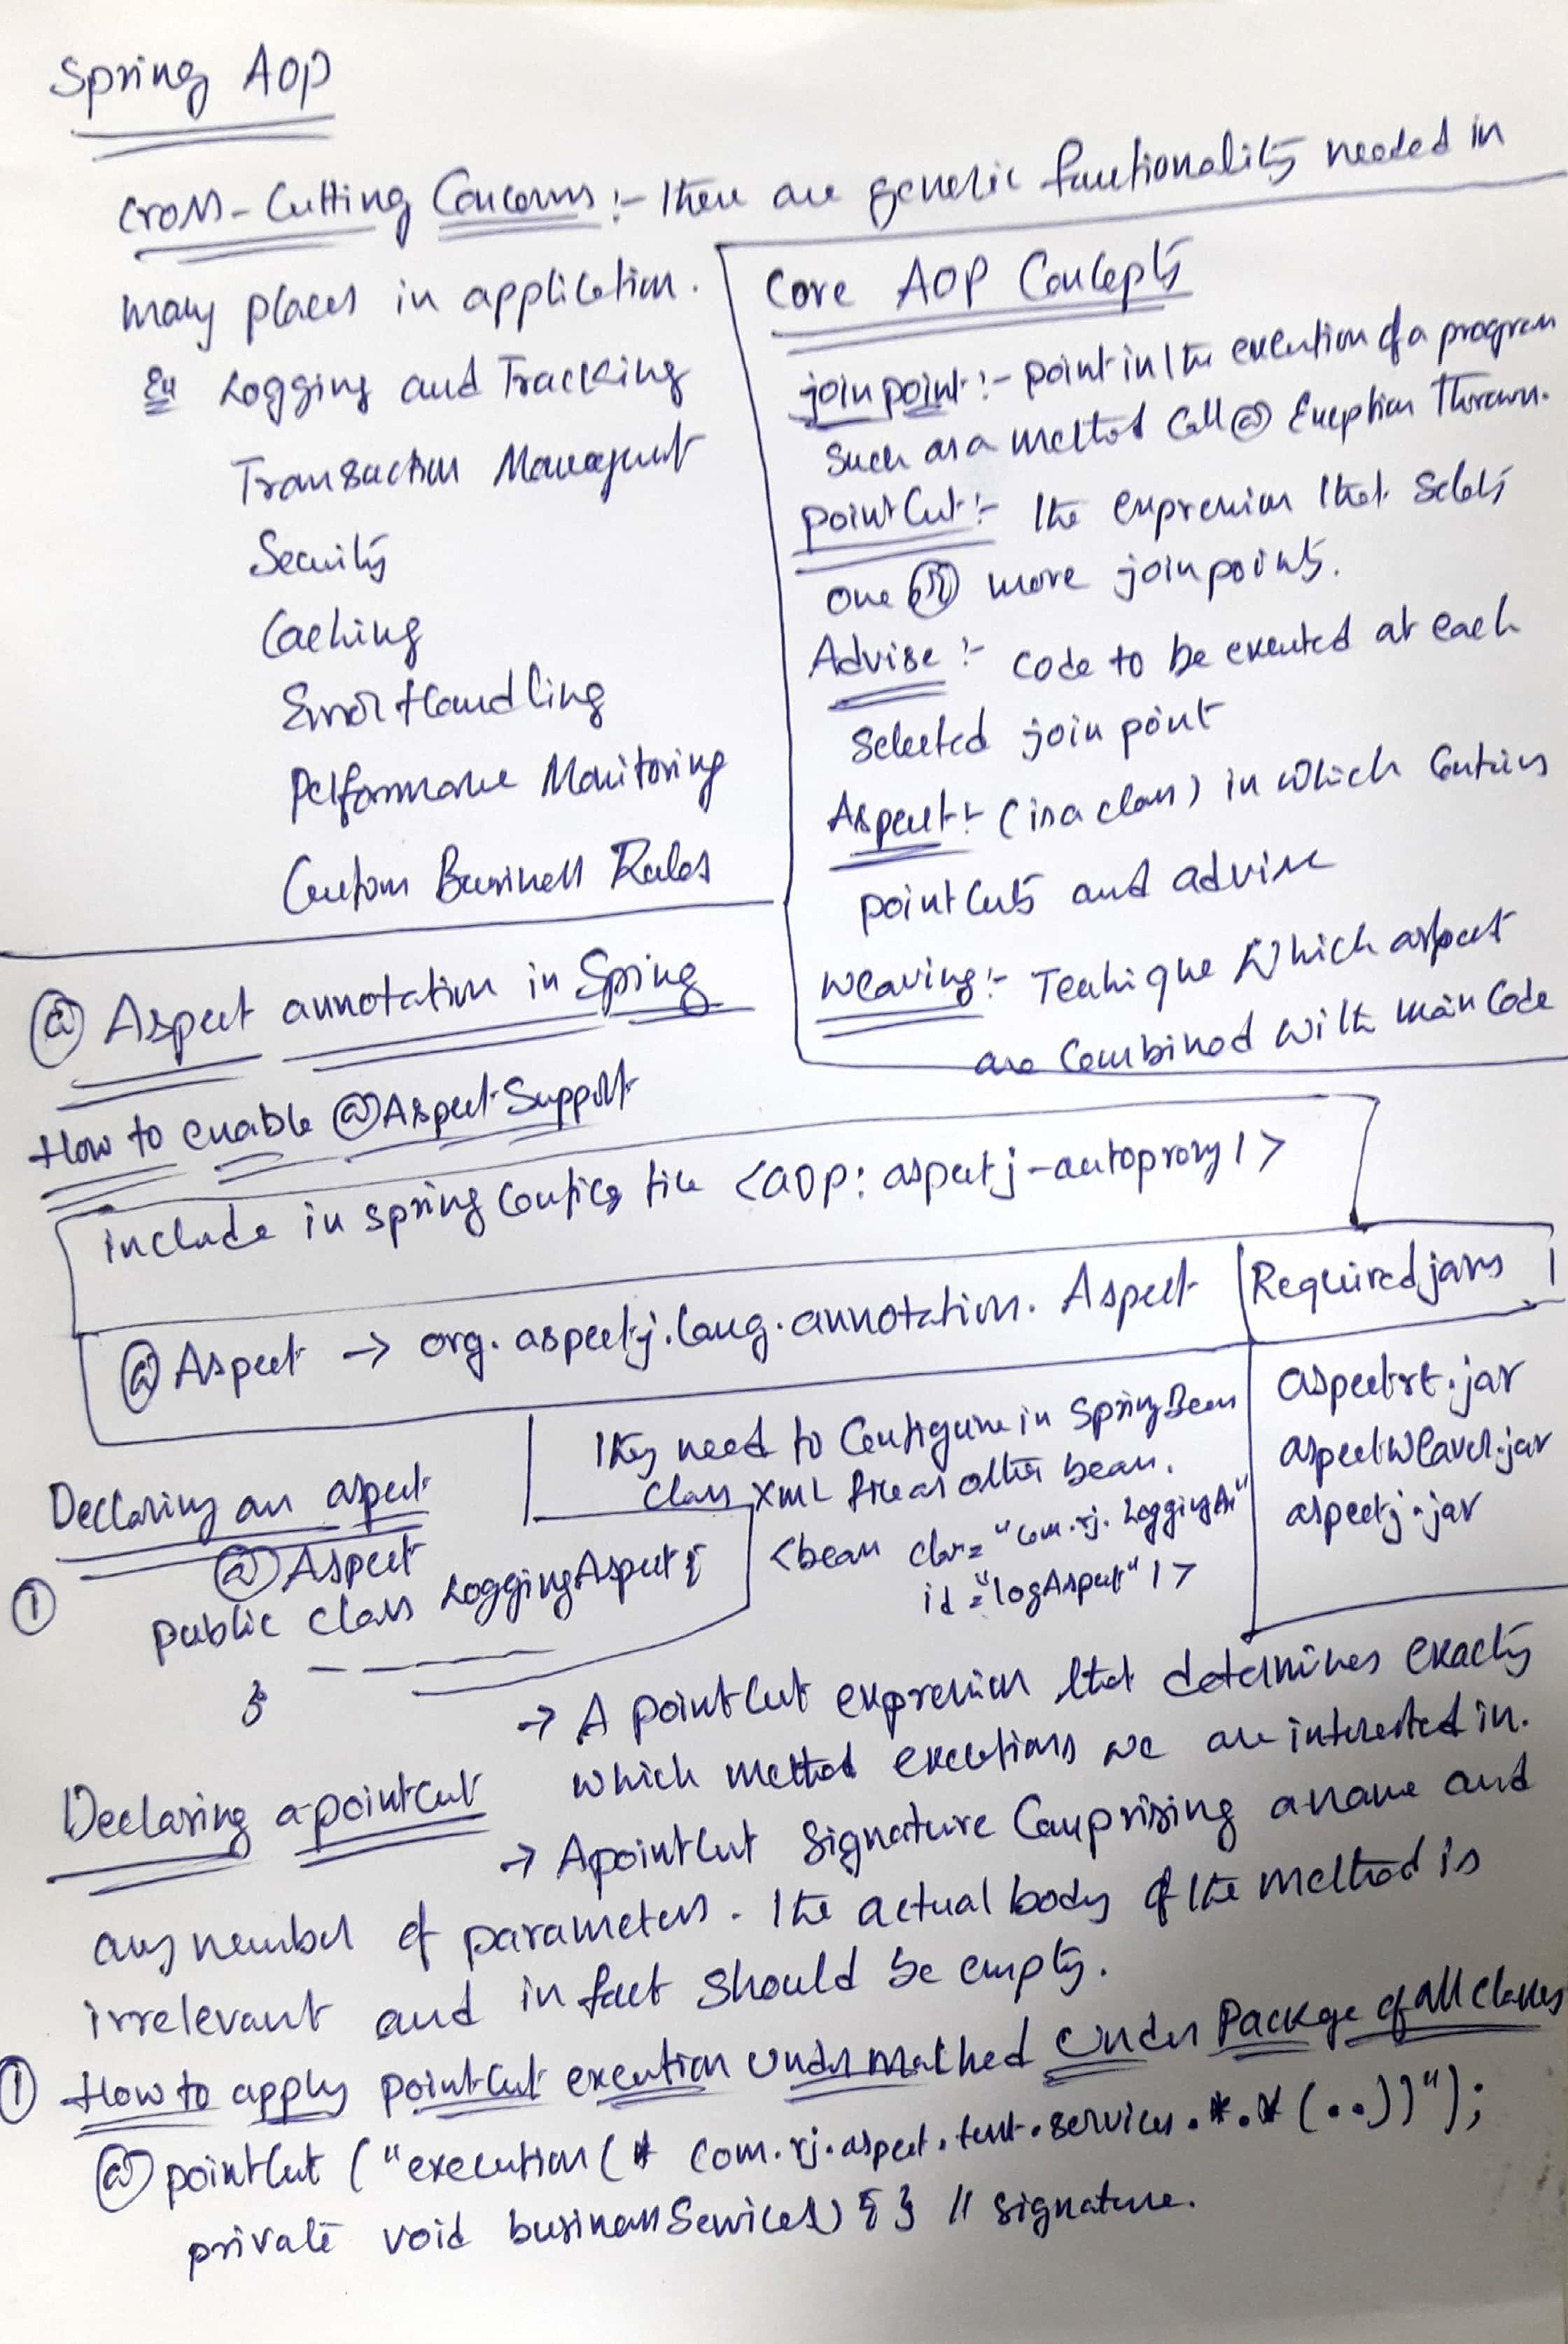 Spring AOP
Cross-Cutting Concerns :- There are generic functionality needed in
many places in application.
Ex Logging and Tracking
Transaction Management
Security
Caching
Error Handling
Performance Monitoring
Custom Business Rules
Core AOP Concepts
join point :- point in the execution of a program
Such as a method Call @ Exception Thrown.
point Cut :- The expression that selects
one or more join points.
Advise :- Code to be executed at each
Selected join point
Aspect :- (is a class) in which Contains
point Cuts and advise
Weaving :- Technique Which aspect
are Combined with main Code
@ Aspect annotation in Spring
How to enable @Aspect Support
include in spring Config file <aop: aspectj-autoproxy />
@ Aspect → org.aspectj.lang.annotation. Aspect
Required jars
aspectrt.jar
aspectweaver.jar
aspectj.jar
They need to Configure in Spring Bean
Class XML file as other bean.
<bean class="com.rj.
id="logAspect" />
Declaring an aspect
① @ Aspect
public class LoggingAspect {
}
Declaring a pointcut
→ A pointcut expression that determines exactly
which method executions we are interested in.
→ A pointcut Signature Comprising a name and
any number of parameters. The actual body of the method is
irrelevant and in fact should be empty.
① How to apply pointcut execution under Package of all classes
@ pointcut ("execution(* com.rj.aspect.test.services.*.*(..))");
private void businessServices) { } // signature.